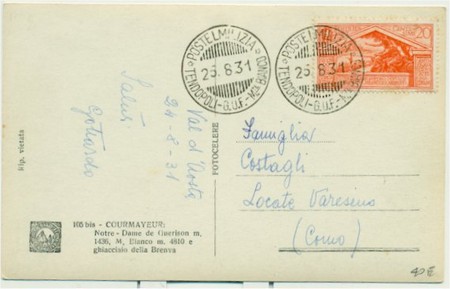 POSTELMILIZIA
25.8.31
TENDOPOLI-G.U.F.-
POSTELMILIZIA
26.8.31
TENDOPOLI-G.U.F.-
20
Rip. vietata
Saluti
Val d'Aosta
24-8-31
FOTOCELERE
Famiglia
Costagli
Locate Varesino
(Como)
bis - COURMAYEUR:
Notre-Dame de Guerison m.
1436, M. Bianco m. 4810 e
ghiacciaio della Brenva
40€